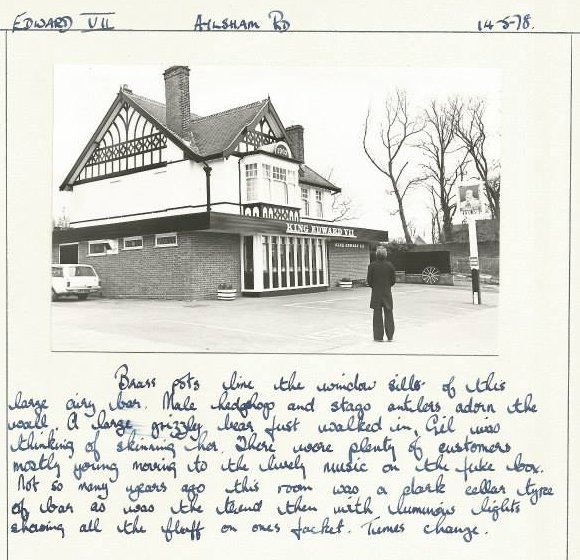 EDWARD VII AYLSHAM RD 14-5-78.
KING EDWARD VII
KING EDWARD VII
Brass pots line the window sills of this
large airy bar. Male hedghogs and stags antlers adorn the
wall. A large grizzly bear just walked in, Gil was
thinking of skinning her. There were plenty of customers
mostly young moving to the lively music on the juke box.
Not so many years ago this room was a dark cellar type
of bar as was the trend then with luminous lights
showing all the fluff on ones jacket. Times change.